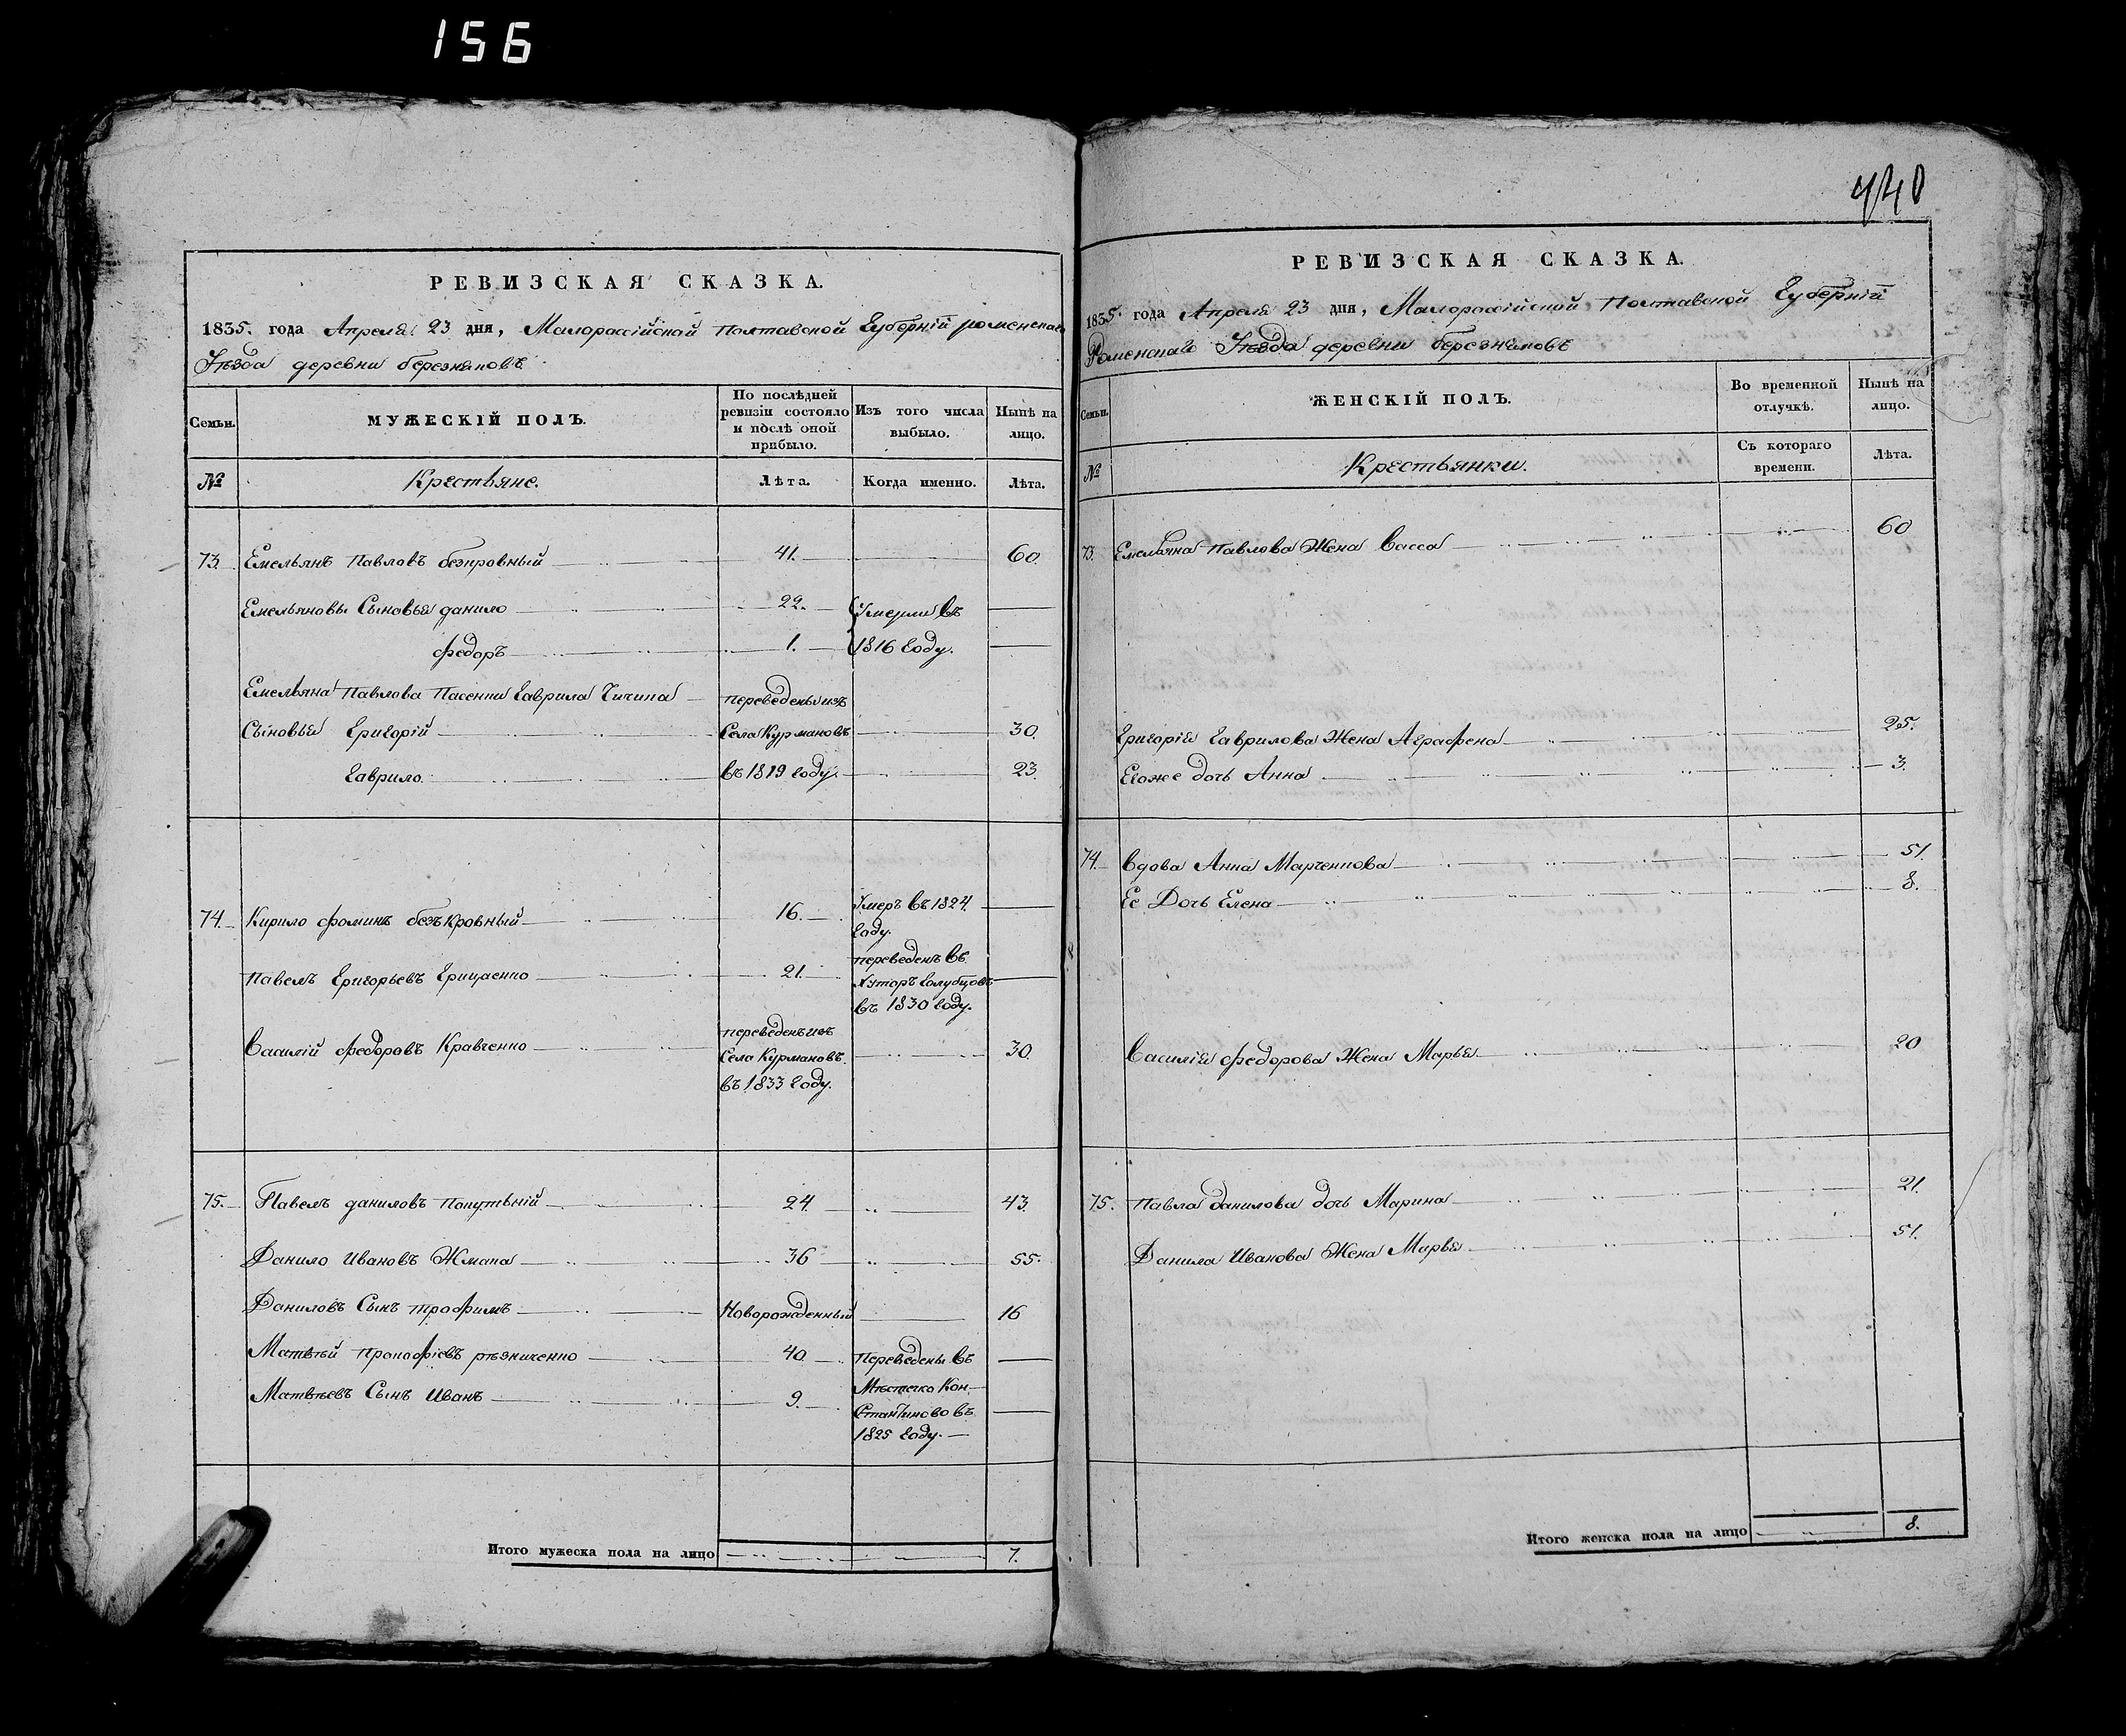 156
РЕВИЗСКАЯ СКАЗКА.
1835. года Апреля 23 дня, Малороссійской Полтавской Губерній роменскаго
Уѣзда деревни березняковъ
Семьи.
МУЖЕСКІЙ ПОЛЪ.
По послѣдней ревизіи состояло и послѣ оной прибыло.
Изъ того числа выбыло.
Нынѣ на лицо.
№
Крестьяне.
Лѣта.
Когда именно.
Лѣта.
73. Емельянъ Павловъ безкровный 41. 60.
Емельяновы Сыновья данило 22. Умерли въ
федоръ 1. 1816 Году.
Емельяна Павлова Пасенки Гаврила Чичина переведены изъ
Сыновья Григорій Села Курмановъ 30.
Гаврило. въ 1819 Году. 23.
74. Кирило фоминъ безъкровный 16. Умеръ въ 1824.
Году.
Павелъ Григорьевъ Грицаенко 21. переведенъ въ
Хуторъ Голубцовъ
въ 1830 Году.
Василій федоровъ Кравченко переведенъ изъ
Села Курмановъ 30.
въ 1833 Году.
75. Павелъ даниловъ Попутьній 24. 43.
Данило Ивановъ Жмака 36 55.
Даниловъ Сынъ трофимъ Новорожденный 16
Матвѣй Прокофіевъ рѣзниченко 40 Переведены въ
Матвѣевъ Сынъ Иванъ 9. Мѣстечко Кон-
Стантиново въ
1825 Году.
Итого мужеска пола на лицо 7.
440
РЕВИЗСКАЯ СКАЗКА.
1835. года Апреля 23 дня, Малороссійской Полтавской Губерній
Роменскаго Уѣзда деревни березняковъ
Семьи.
ЖЕНСКІЙ ПОЛЪ.
Во временной отлучкѣ.
Нынѣ на лицо.
№
Крестьянки.
Съ котораго времени.
Лѣта.
73. Емельяна Павлова Жена Васса 60
Григорія Гаврилова Жена Аграфена 25.
Егоже дочь Анна 3.
74. Вдова Анна Марченкова 51.
Ее Дочь Елена 8.
Василія федорова Жена Марья 20
75. Павла данилова дочь Марина 21.
Данила Иванова Жена Марья 51.
Итого женска пола на лицо 8.